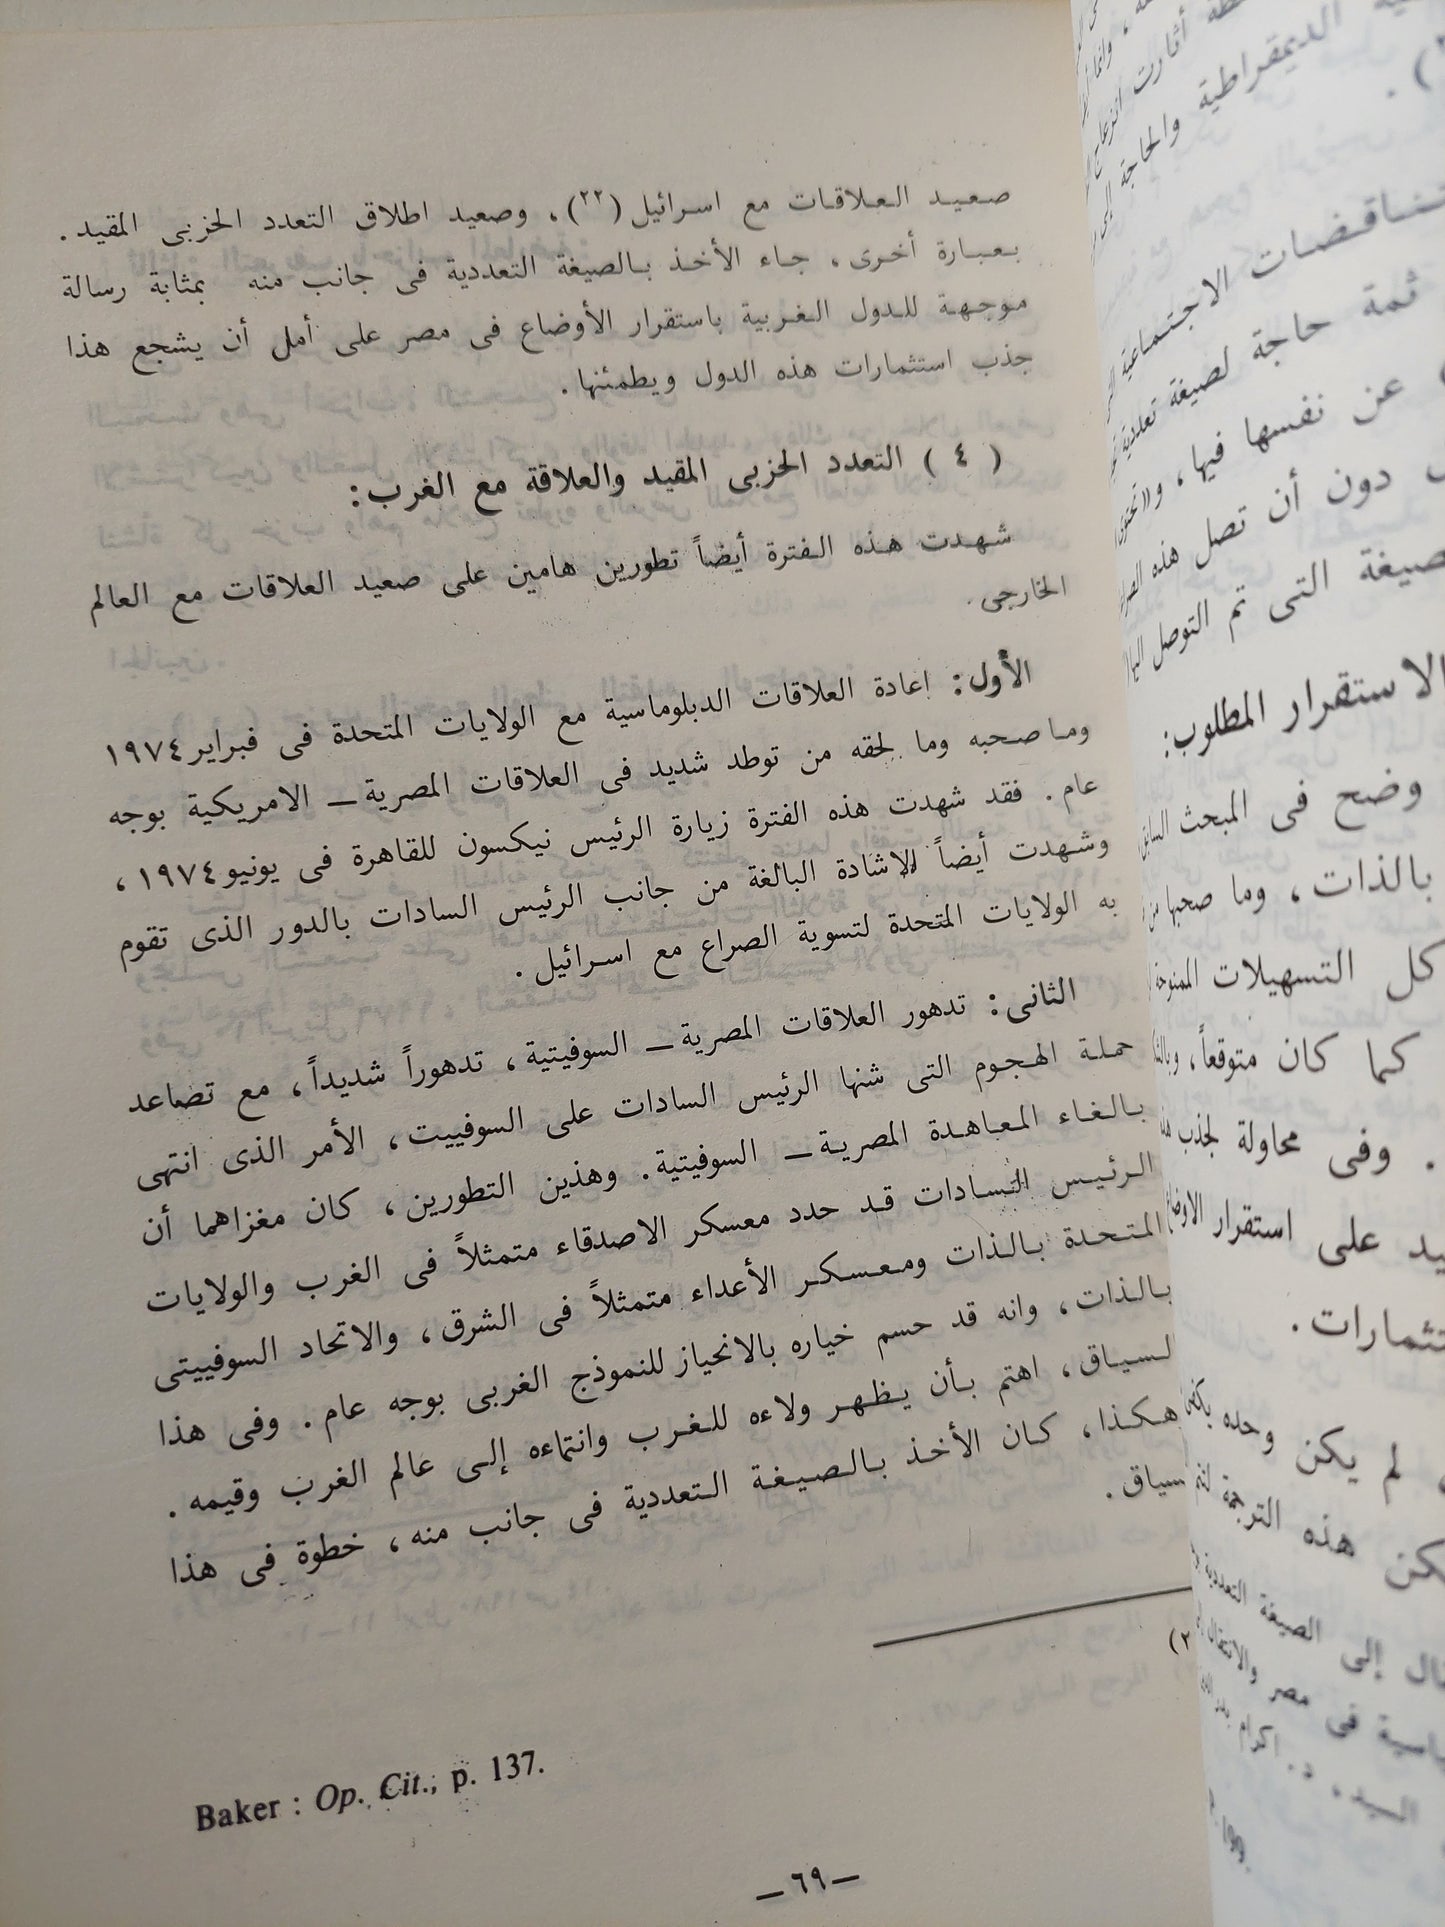 صعيد العلاقات مع اسرائيل (٢٢)، وصعيد اطلاق التعدد الحزبى المقيد.
بعبارة أخرى، جاء الأخذ بالصيغة التعددية فى جانب منه بمثابة رسالة
موجهة للدول الغربية باستقرار الأوضاع فى مصر على أمل أن يشجع هذا
جذب استثمارات هذه الدول ويطمئنها.
( ٤ ) التعدد الحزبى المقيد والعلاقة مع الغرب:
شهدت هذه الفترة أيضاً تطورين هامين على صعيد العلاقات مع العالم
الخارجى.
الأول: إعادة العلاقات الدبلوماسية مع الولايات المتحدة فى فبراير ١٩٧٤
وما صحبه وما لحقه من توطد شديد فى العلاقات المصرية ــ الامريكية بوجه
عام. فقد شهدت هذه الفترة زيارة الرئيس نيكسون للقاهرة فى يونيو ١٩٧٤،
وشهدت أيضاً الاشادة البالغة من جانب الرئيس السادات بالدور الذى تقوم
به الولايات المتحدة لتسوية الصراع مع اسرائيل.
الثانى: تدهور العلاقات المصرية ــ السوفيتية، تدهوراً شديداً، مع تصاعد
حملة الهجوم التى شنها الرئيس السادات على السوفييت، الأمر الذى انتهى
بالغاء المعاهدة المصرية ــ السوفيتية. وهذين التطورين، كان مغزاهما أن
الرئيس السادات قد حدد معسكر الاصدقاء متمثلاً فى الغرب والولايات
المتحدة بالذات ومعسكر الأعداء متمثلاً فى الشرق، والاتحاد السوفييتى
بالذات، وانه قد حسم خياره بالانحياز للنموذج الغربى بوجه عام. وفى هذا
لسياق، اهتم بأن يظهر ولاءه للغرب وانتماءه إلى عالم الغرب وقيمه.
هكذا، كان الأخذ بالصيغة التعددية فى جانب منه، خطوة فى هذا
سياق.
Baker : Op. Cit., p. 137.
ــ ٦٩ ــ
الديمقراطية والحاجة إلى
الاجتماعية
ثمة حاجة لصيغة تعددية
عن نفسها فيها،
دون أن تصل هذه
التى تم التوصل اليها
الاستقرار المطلوب:
وضح فى المبحث
بالذات، وما صحبها
كل التسهيلات
كما كان متوقعاً،
. وفى محاولة لجذب
على استقرار
لم يكن وحده
هذه الترجمة
إلى الصيغة التعددية
فى مصر